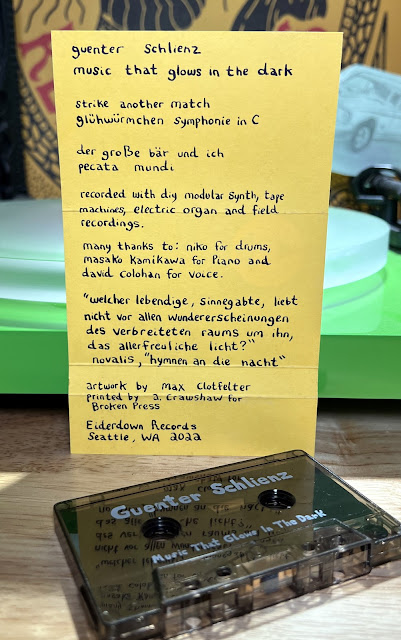 guenter schlienz
music that glows in the dark
strike another match
glühwürmchen symphonie in C
der große bär und ich
pecata mundi
recorded with diy modular synth, tape
machines, electric organ and field
recordings.
many thanks to: niko for drums,
masako kamikawa for piano and
david colohan for voice.
"welcher lebendige, sinnegabte, liebt
nicht vor allen wundererscheinungen
des verbreiteten raums um ihn,
das allerfreuliche licht?"
novalis, "hymnen an die nacht"
artwork by max clotfelter
printed by J. Crawshaw for
Broken Press
Eiderdown Records
Seattle, WA 2022
Guenter Schlienz
Music That Glows In The Dark